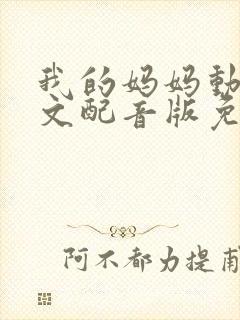 我的妈妈動
文配音版免
阿不都力提甫